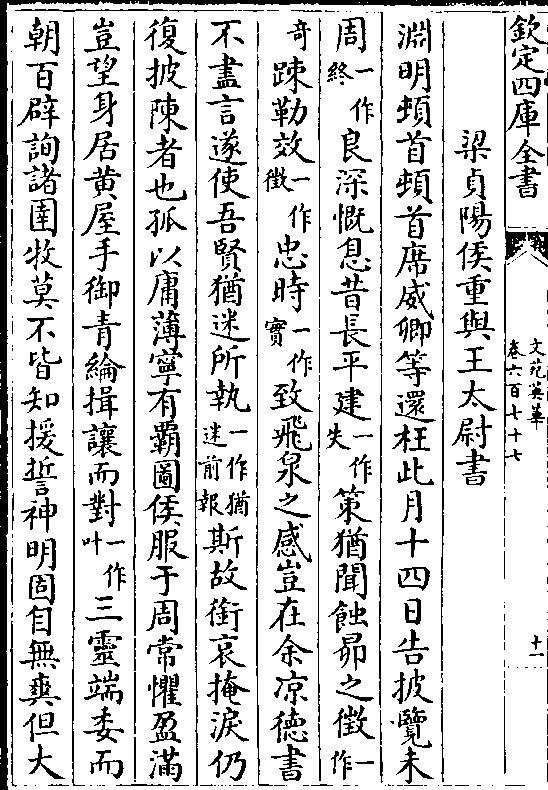 欽定四庫全書
文苑英華
卷六百七十七
十一
梁貞陽侯重與王太尉書
淵明頓首頓首席威卿等還枉此月十四日告披覽未
周一作終良深慨息昔長平建一作失策猶聞蝕昴之徴一作
奇踈勒效一作徴忠時一作實致飛泉之感豈在余凉德書
不盡言遂使吾賢猶迷所執一作猶迷前報斯故銜哀掩淚仍
復披陳者也孤以庸薄寧有覇圖侯服于周常懼盈滿
豈望身居黄屋手御青綸揖讓而對一作叶三靈端委而
朝百辟詢諸圉牧莫不皆知援誓神明固自無爽但大